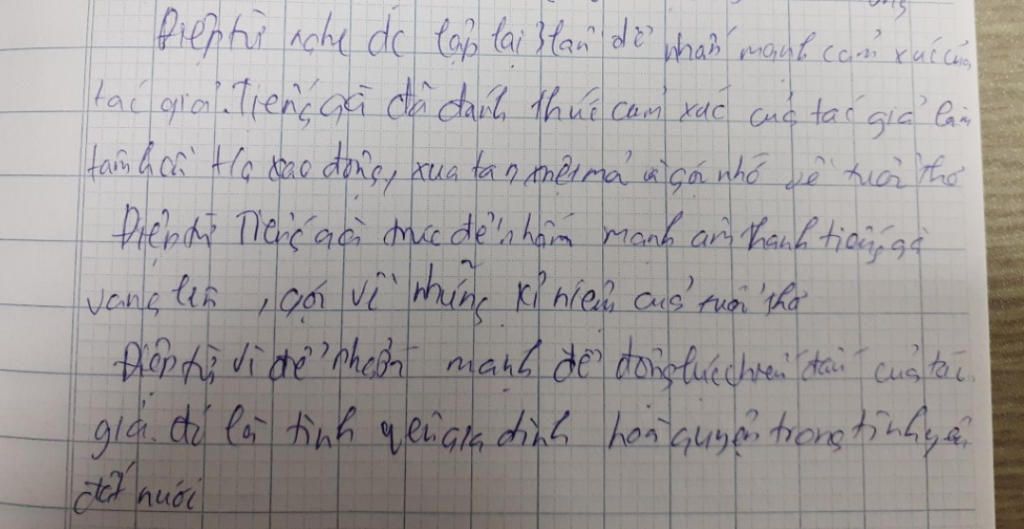 Điệp từ nghe dc lặp lại 3 lần để nhấn mạnh cảm xúc của
tác giả. Tiếng gà đã đánh thức cảm xúc của tác giả làm
tâm hồn xao động, xua tan mệt mả và gợi nhớ về tuổi thơ
Điệp từ Tiếng gà trưa để nhấn mạnh âm thanh tiếng gà
vang lên , gợi về những kỉ niệm của tuổi thơ
Điệp từ vì để nhấn mạnh để động lực chiến đấu của tác
giả. đó là tình yêu gia đình hoà quyện trong tình yêu
đất nước